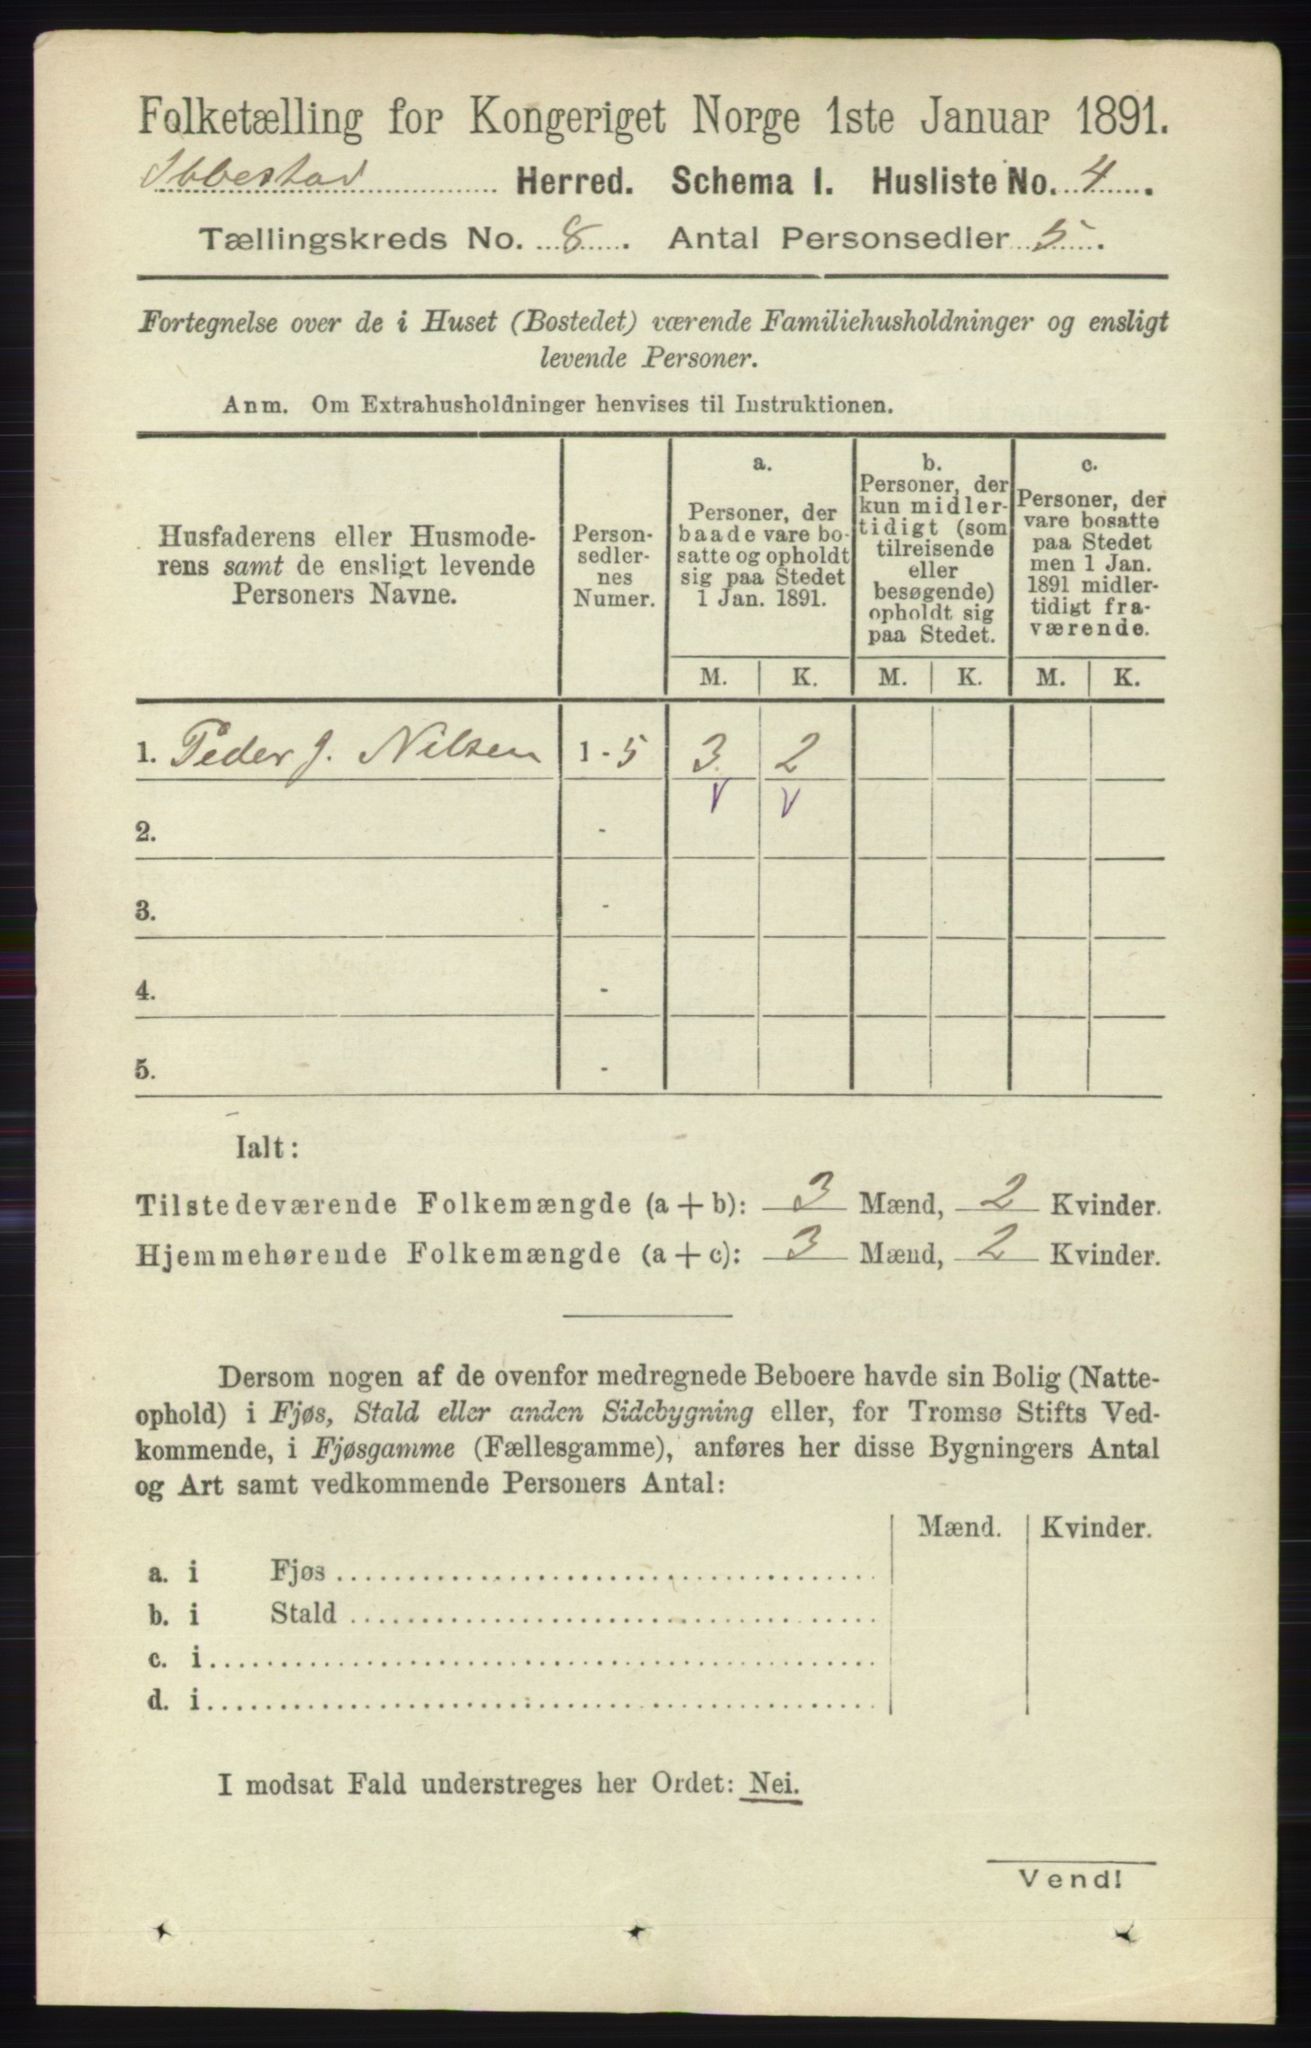 Folketælling for Kongeriget Norge 1ste Januar 1891.
Ibbestad Herred. Schema I. Husliste No. 4.
Tællingskreds No. 8. Antal Personsedler 5.
Fortegnelse over de i Huset (Bostedet) værende Familiehusholdninger og ensligt
levende Personer.
Anm. Om Extrahusholdninger henvises til Instruktionen.
Husfaderens eller Husmode-
rens samt de ensligt levende
Personers Navne.
Person-
sedler-
nes
Numer.
a.
Personer, der
baade vare bo-
satte og opholdt
sig paa Stedet
1 Jan. 1891.
b.
Personer, der
kun midler-
tidigt (som
tilreisende
eller
besøgende)
opholdt sig
paa Stedet.
c.
Personer, der
vare bosatte
paa Stedet
men 1 Jan.
1891 midler-
tidigt fra-
værende.
M. K. M. K. M. K.
1. Peder J. Nilsen 1-5 3 2
2. -
3. -
4. -
5. -
Ialt:
Tilstedeværende Folkemængde (a + b): 3 Mænd, 2 Kvinder.
Hjemmehørende Folkemængde (a + c): 3 Mænd, 2 Kvinder.
Dersom nogen af de ovenfor medregnede Beboere havde sin Bolig (Natte-
ophold) i Fjøs, Stald eller anden Sidebygning eller, for Tromsø Stifts Ved-
kommende, i Fjøsgamme (Fællesgamme), anføres her disse Bygningers Antal
og Art samt vedkommende Personers Antal:
Mænd. Kvinder.
a. i Fjøs
b. i Stald
c. i
d. i
I modsat Fald understreges her Ordet: Nei.
Vend!